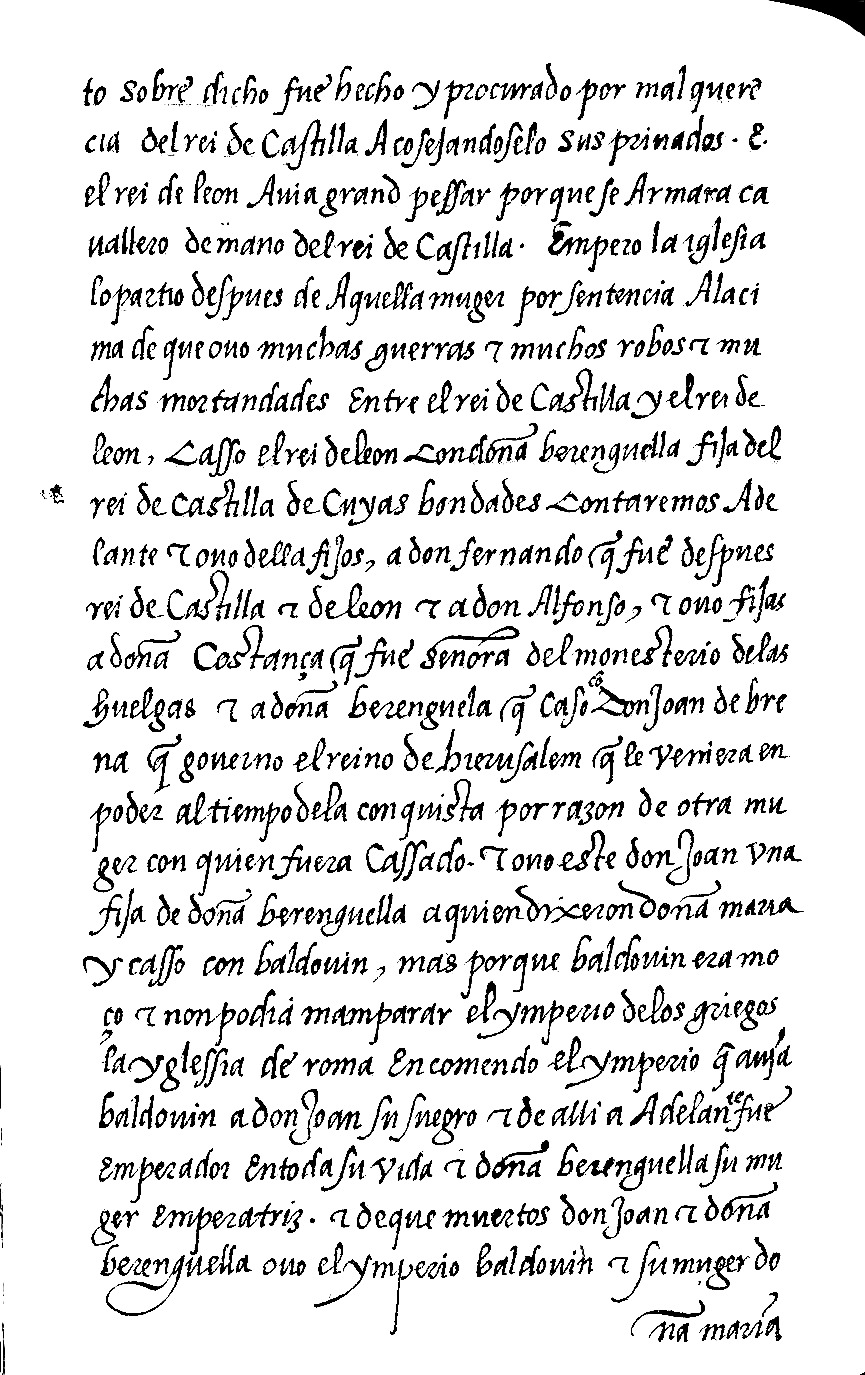 to sobre dicho fue hecho y procurado por mal querē
cia del rei de Castilla Acosejandoselo sus priuados. E.
el rei de leon Auia grand pessar porque se Armara ca
uallero de mano del rei de Castilla. Empero la iglesia
lo partio despues de Aquella muger por sentencia Alaci
ma de que ouo muchas guerras ⁊ muchos robos ⁊ mu
chas mortandades Entre el rei de Castilla y el rei de
leon, Casso el rei de leon Con doña berenguella fija del
rei de Castilla de Cuyas bondades Contaremos Ade
lante ⁊ ouo della fijos, a don fernando q̃ fue despues
rei de Castilla ⁊ de leon ⁊ a don Alfonso, ⁊ ouo fijas
a doña Costança q̃ fue señora del monesterio de las
huelgas ⁊ a doña berenguela q̃ Caso cō Don Joan de bre
na q̃ gouerno el reino de hierusalem q̃ le veniera en
poder al tiempo de la conquista por razon de otra mu
ger con quien fuera Cassado. ⁊ ouo este don Joan vna
fija de doña berenguella a quien dixeron doña maria
y casso con baldouin, mas porque baldouin era mo
ço ⁊ non podia mamparar el ymperio de los griegos
la yglessia de roma Encomendo el ymperio q̃ auja
baldouin a don Joan su suegro ⁊ de alli a Adelante fue
Emperador En toda su vida ⁊ doña berenguella su mu
ger Emperatriz. ⁊ de que muertos don Joan ⁊ doña
berenguella ouo el ymperio baldouin ⁊ su muger do
ña maria